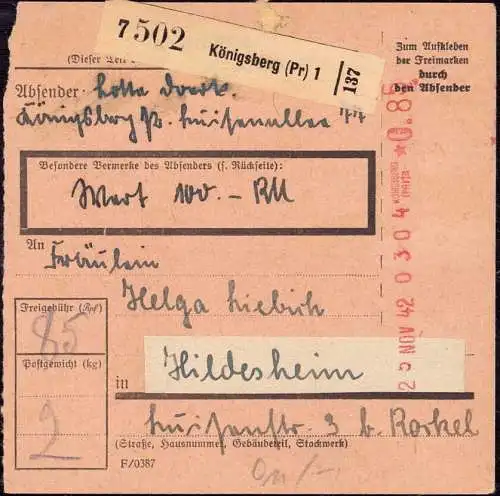 7502 Königsberg (Pr) 1 137
(Dieser Teil
Zum Aufkleben
der Freimarken
durch
den Absender
Absender: Lotte
Königsberg Pr. Luisenallee
Besondere Vermerke des Absenders (s. Rückseite):
Wert 100.- RM
An
Fräulein
Helga Liebich
Freigebühr (Rpf)
85
Postgewicht (kg)
2
in Hildesheim
Luisenstr. 3 b. Korkel
(Straße, Hausnummer, Gebäudeteil, Stockwerk)
F/0387
25 NOV 42 0304 *0.85
KÖNIGSBERG